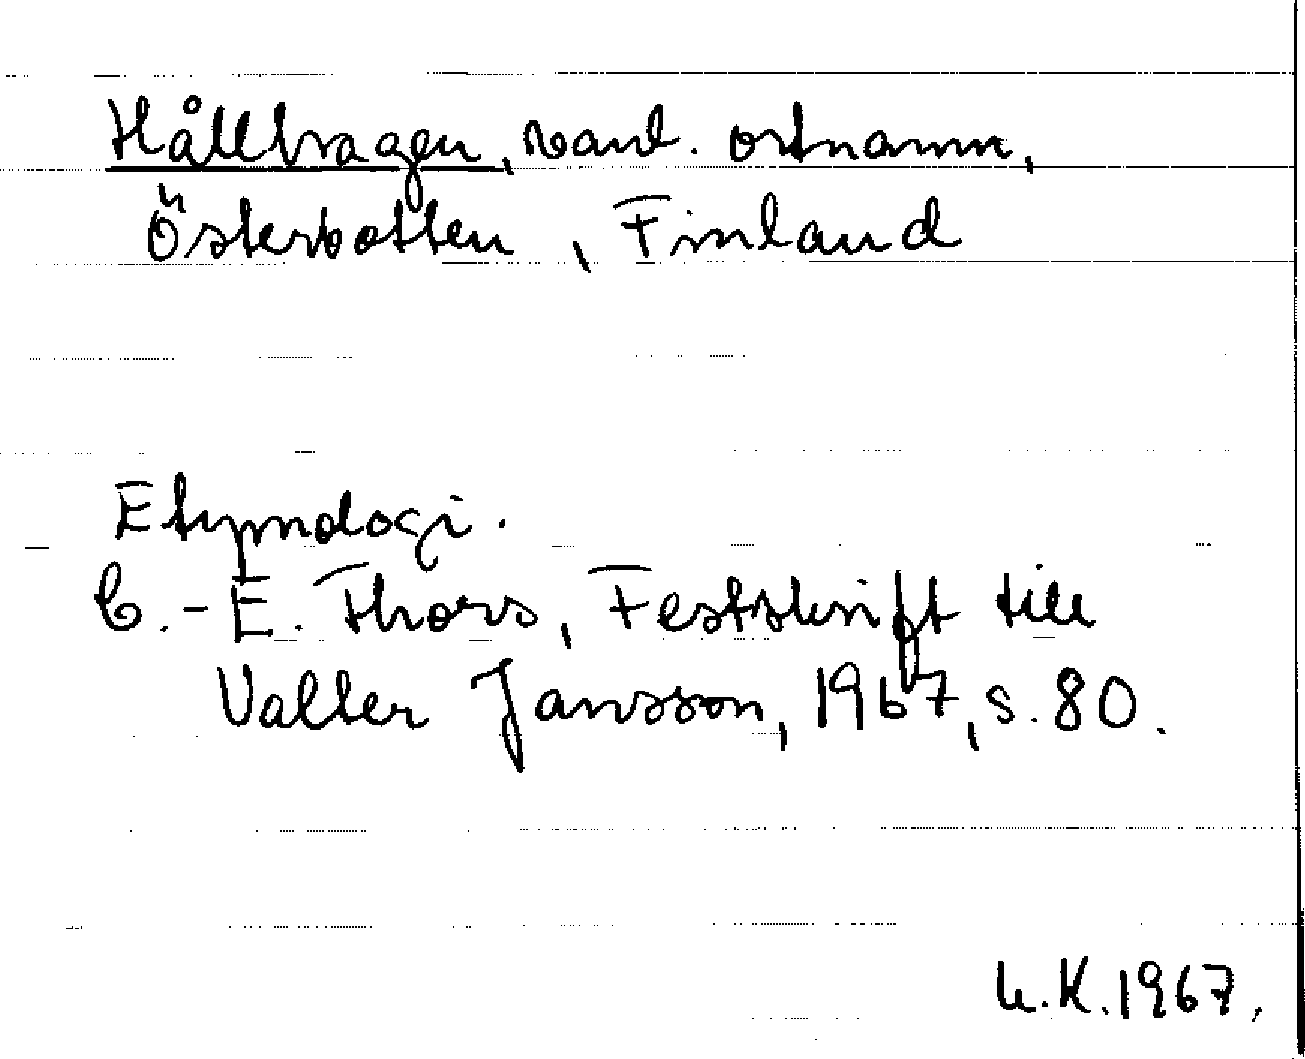 Hållhagen, vanl. ortnamn,
Österbotten, Finland
Etymologi.
C.-E. Thors, Festskrift till
Valter Jansson, 1967, s. 80.
U.K. 1967.